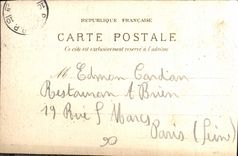 REPUBLIQUE FRANÇAISE
CARTE POSTALE
Ce côté est exclusivement réservé à l'adresse
M. Edmon Cardan
Restaurant A Brien
19 Rue S Marc
Paris (Seine)